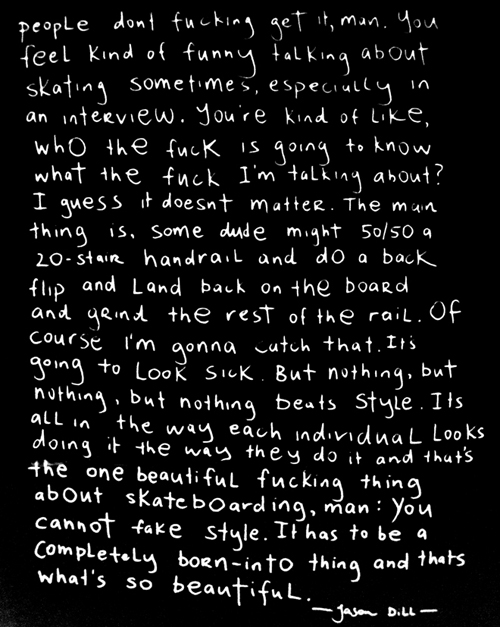 people dont fucking get it, man. You
feel kind of funny talking about
skating sometimes, especially in
an interview. You're kind of like,
who the fuck is going to know
what the fuck I'm talking about?
I guess it doesnt matter. The main
thing is, some dude might 50/50 a
20-stair handrail and do a back
flip and Land back on the board
and grind the rest of the rail. Of
course i'm gonna catch that. Its
going to Look sick. But nothing, but
nothing, but nothing beats style. Its
all in the way each individual Looks
doing it the way they do it and that's
the one beautiful fucking thing
about skateboarding, man: you
cannot fake style. It has to be a
completely born-into thing and thats
what's so beautiful.
—Jason Dill—